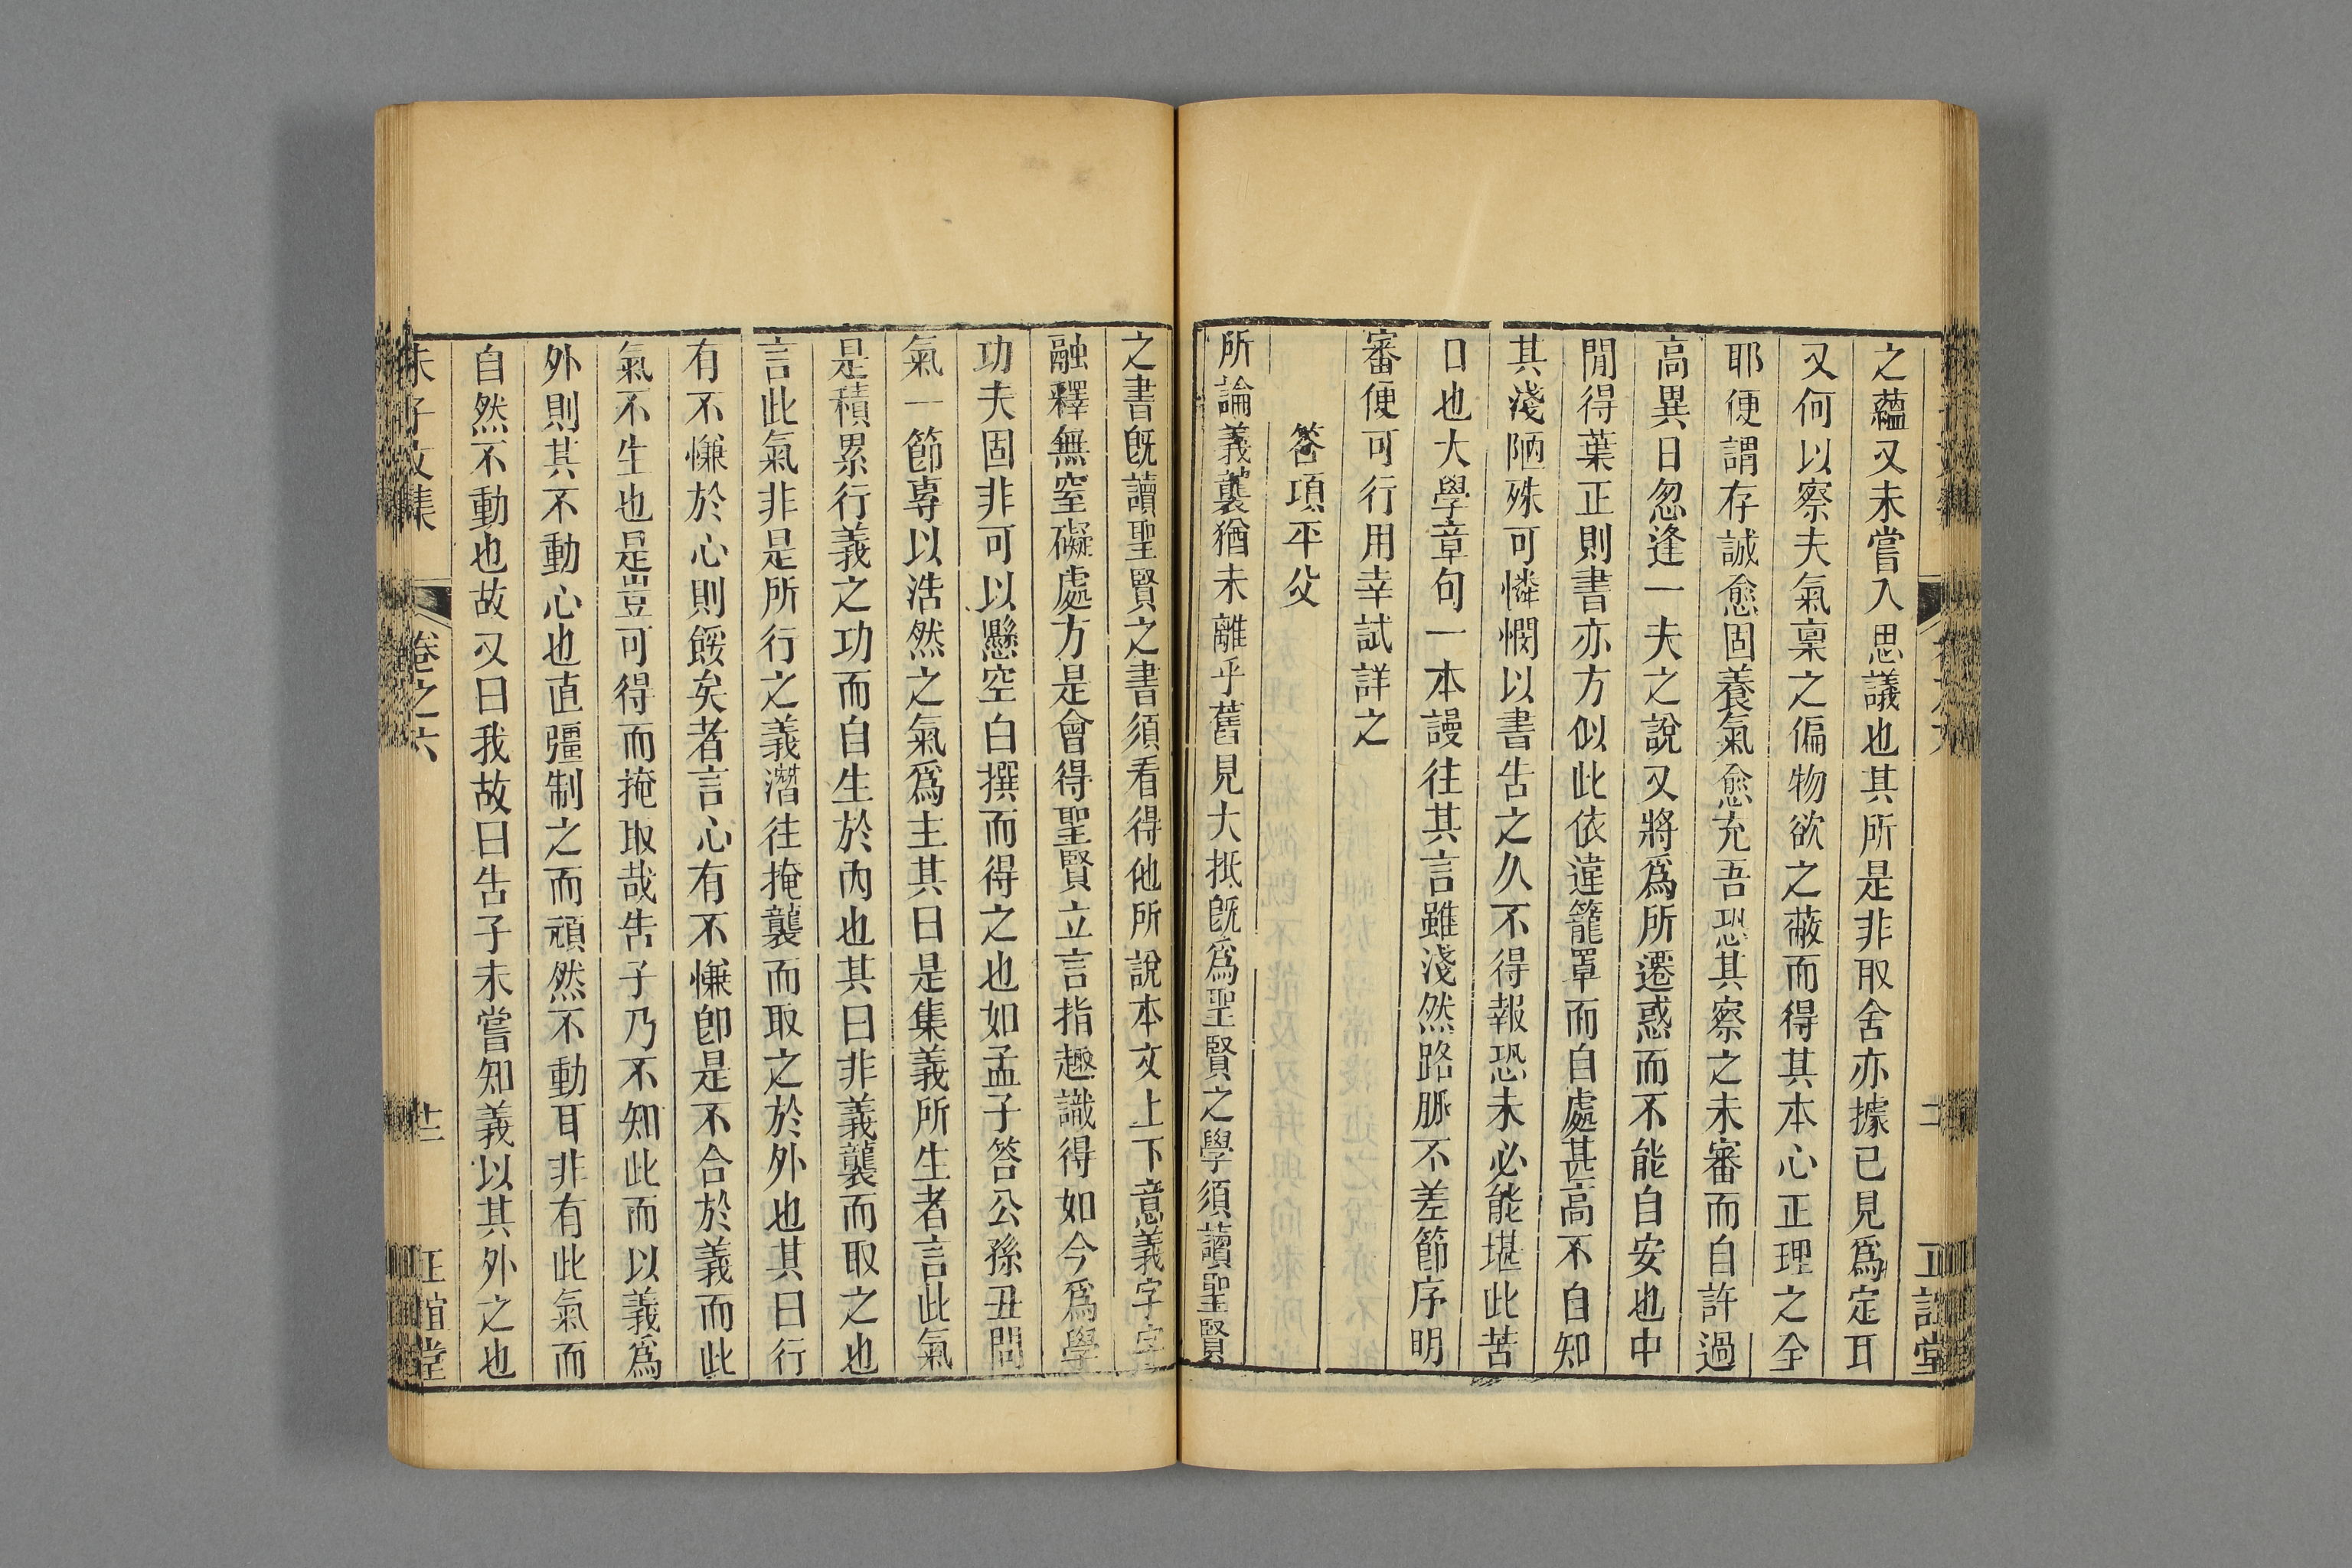 之蘊又未嘗入思議也其所是非取舍亦據已見爲定耳
又何以察夫氣稟之偏物欲之蔽而得其本心正理之全
耶便謂存誠愈固養氣愈充吾恐其察之未審而自許過
高異日忽逢一夫之說又將爲所遷惑而不能自安也中
閒得葉正則書亦方似此依違籠罩而自處甚高不自知
其淺陋殊可憐憫以書告之久不得報恐未必能堪此苦
口也大學章句一本謾往其言雖淺然路脈不差節序明
審便可行用幸試詳之
答項平父
所論義襲猶未離乎舊見大抵旣爲聖賢之學須讀聖賢
之書旣讀聖賢之書須看得他所說本文上下意義字字
融釋無窒礙處方是會得聖賢立言指趣識得如今爲學
功夫固非可以懸空白撰而得之也如孟子答公孫丑問
氣一節專以浩然之氣爲主其曰是集義所生者言此氣
是積累行義之功而自生於內也其曰非義襲而取之也
言此氣非是所行之義潛往掩襲而取之於外也其曰行
有不慊於心則餒矣者言心有不慊卽是不合於義而此
氣不生也是豈可得而掩取哉告子乃不知此而以義爲
外則其不動心也直彊制之而頑然不動耳非有此氣而
自然不動也故又曰我故曰告子未嘗知義以其外之也
朱子文集 卷之六 廿二 正誼堂